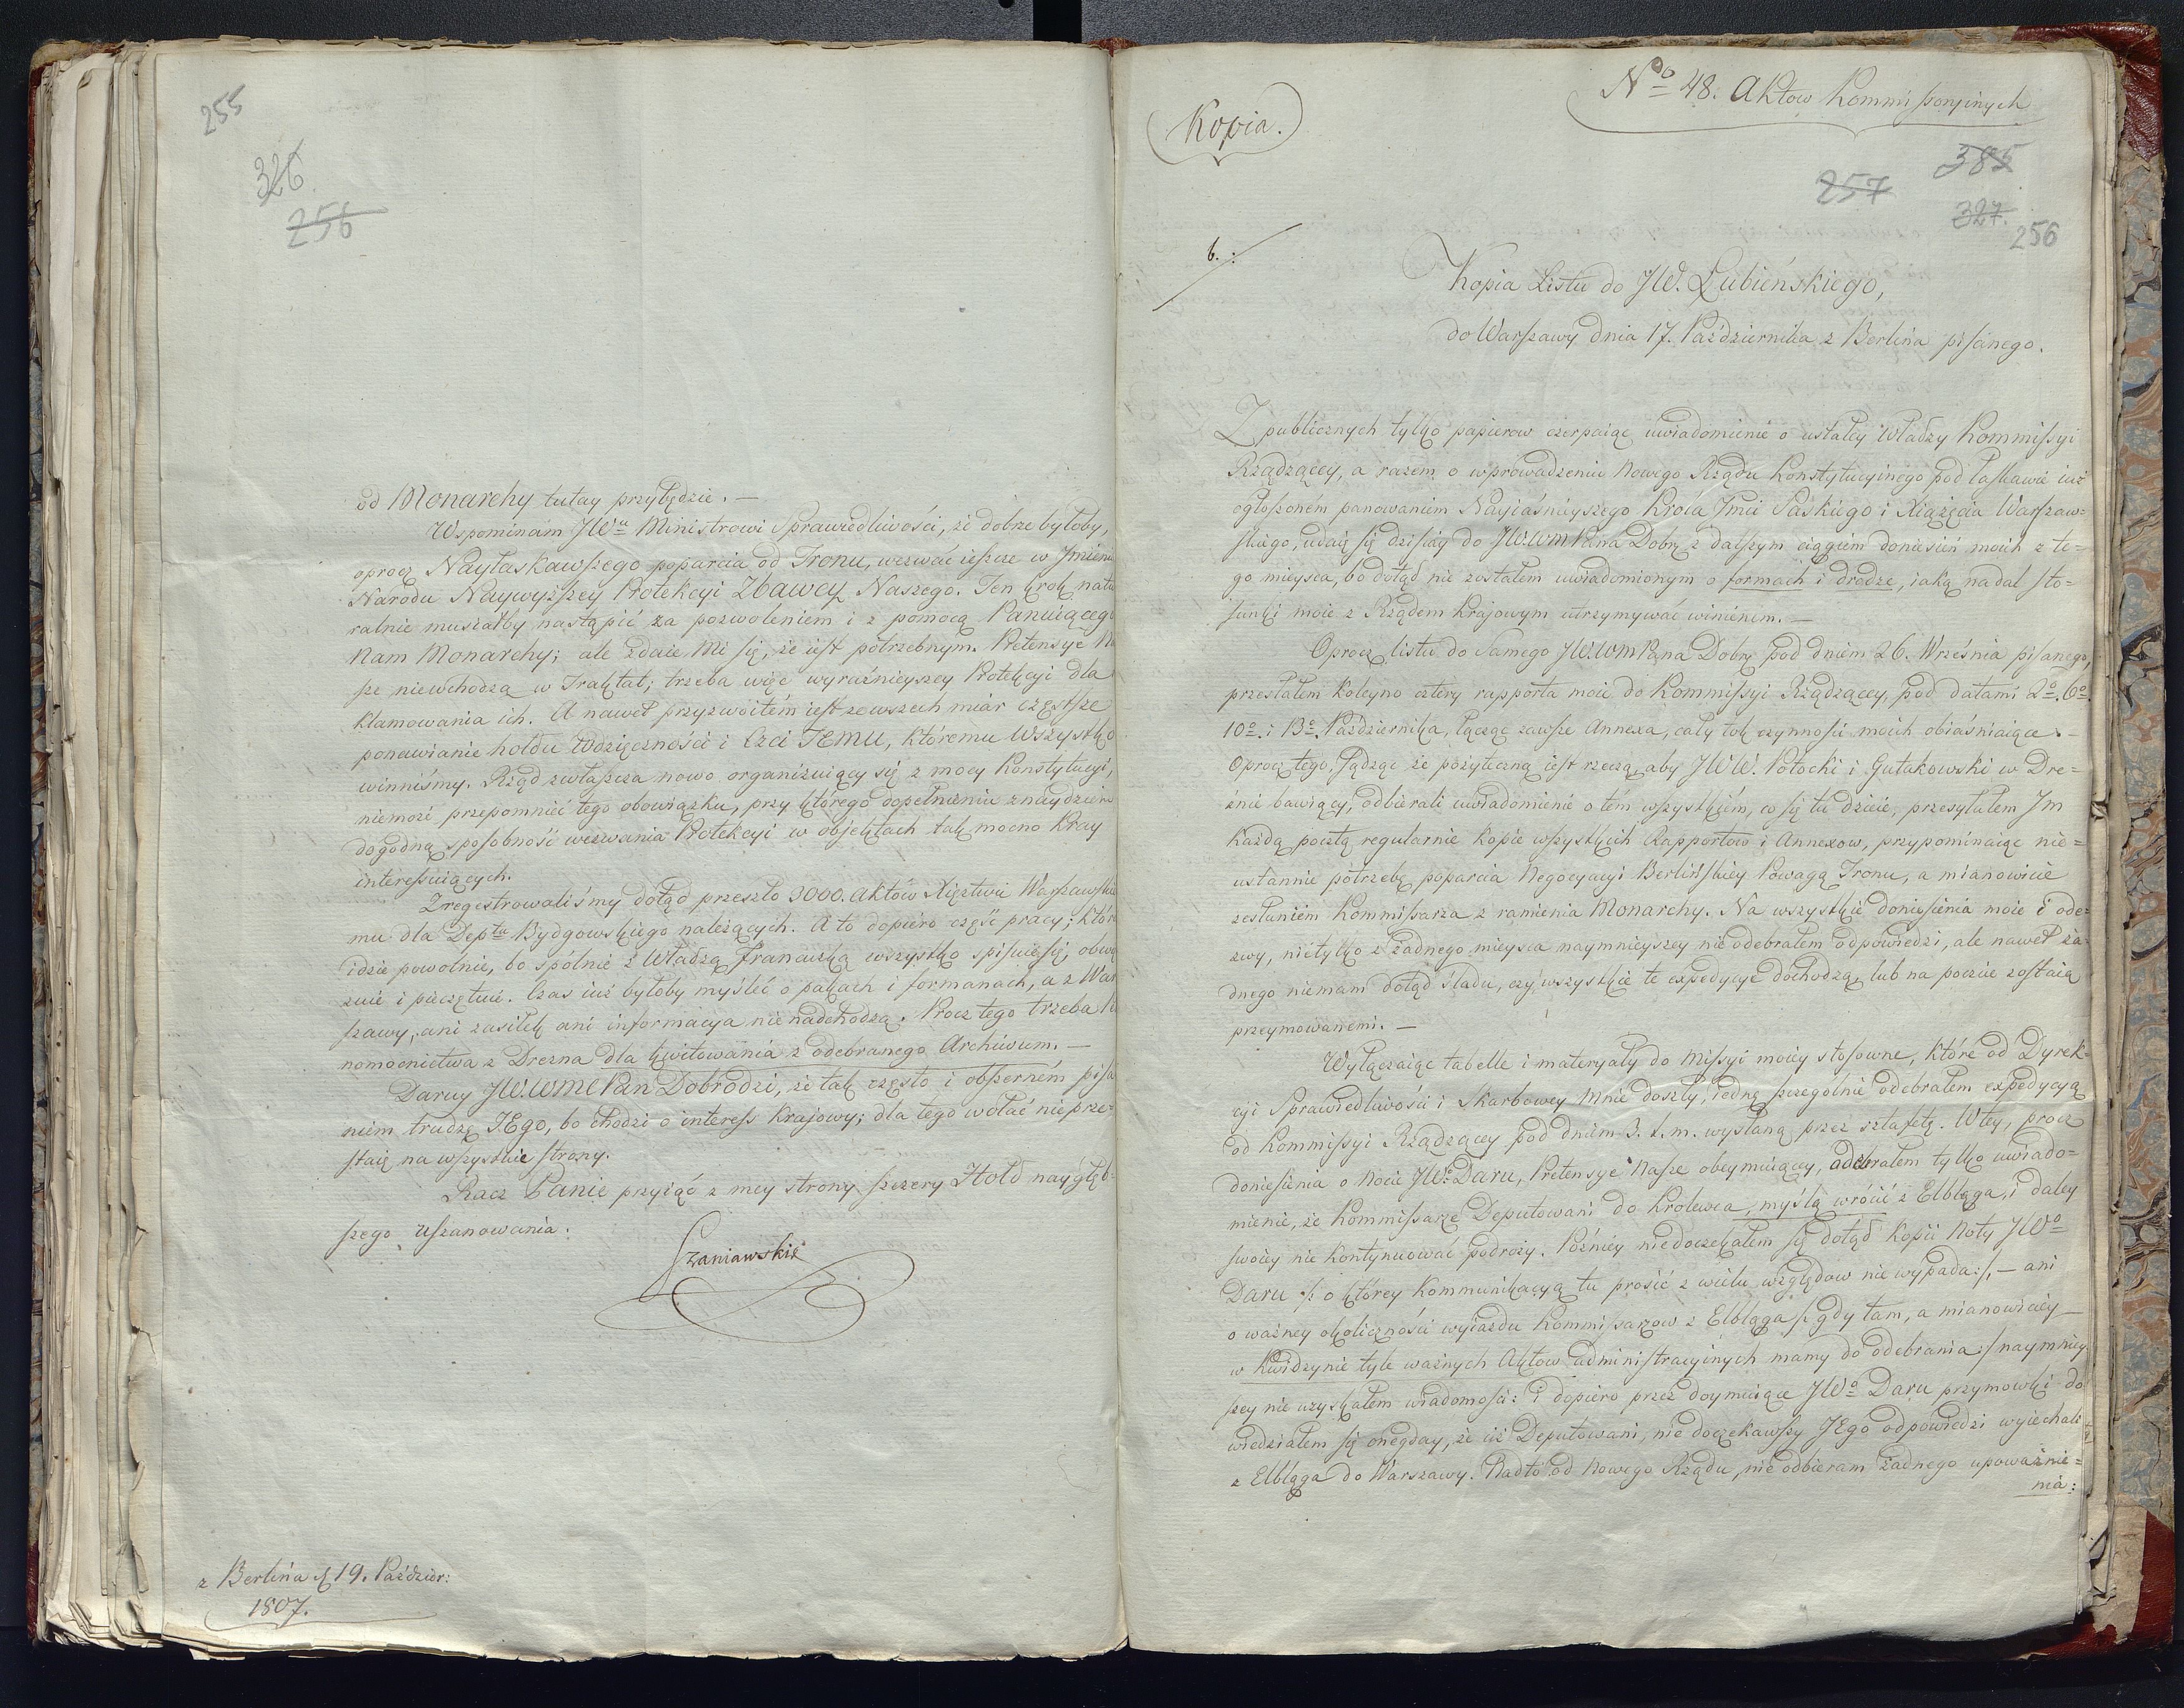 255
326
256
od Monarchy tutay przybędzie. —
Wspominam JWu Ministrowi Sprawiedliwości, że dobrze byłoby,
oprocz Nayłaskawszego poparcia od Tronu, wezwać ieszcze w Jmieniu
Narodu Naywyższey Protekcyi Zbawcy Naszego. Ten krok natu
ralnie muszałby nastąpić za pozwoleniem i z pomocą Panuiącego
Nam Monarchy; ale zdaie Mi się, że iest potrzebnym. Pretensye Na
sze niewchodzą w Traktat; trzeba więc wyraźnieyszey Protekcyi dla
klamowania ich. A nawet przyzwoitém iest zewszech miar częstsze
ponawianie hołdu wdzięczności i Czci TEMU, któremu Wszystko
winniśmy. Rząd zwłaszcza nowo organizuiący się z mocy Konstytucyi,
niemoże przepomnieć tego obowiązku, przy którego dopełnieniu znaydzie
dogodną sposobność wezwania Protekcyi w objektach tak mocno Kray
interessuiących.
Zregestrowaliśmy dotąd przeszło 3000. Aktów Xięztwu Warszawskie
mu dla Deptu Bydgowskiego należących. A to dopiero część pracy; która
idzie powolnie, bo spólnie z Władzą francuzką wszystko spisuie się, obwią
zuie i pieczętuie. Czas iuż byłoby myśleć o pakach i formanach, a z War
szawy, ani zasiłek ani informacya nie nadchodzą. Procz tego trzeba
nomocnictwa z Drezna dla kwitowania z odebranego Archiwum. —
Daruy JW.WMCPan Dobrodzi, że tak często i obszerném pisa
niem trudzę JEgo, bo chodzi o interess Krajowy; dla tego wołać nieprze-
staię na wszystkie strony.
Racz Panie przyiąć z mey strony szczery Hołd naygłęb-
szego uszanowania:
Szaniawski
z Berlina d 19. Paździer:
1807.
Kopia.
No 48. Aktow Kommissoryinych
385
257
327.
256
6. :
Kopia Listu do JW. Łubieńskiego,
do Warszawy dnia 17. Października z Berlina pisanego.
Z publicznych tylko papierow czerpaiąc uwiadomienie o ustałey Władzy Kommissyi
Rządzącey, a razem o wprowadzeniu Nowego Rządu Konstytucyinego pod łaskawie iuż
ogłoszoném panowaniem Nayiaśnieyszego Krola Jmci Saskiego i Xiążęcia Warszaw=
skiego, udaię się dzisiay do JW.WM Pana Dobr. z dalszym ciągiem doniesień moich z te=
go mieysca, bo dotąd nie zostałem uwiadomionym o formach i drodze, iaką nadal sto=
sunki moie z Rządem Krajowym utrzymywać winienem. —
Oprocz listu do Samego JW.WM Pana Dobr. pod dniem 26. Września pisanego,
przesłałem koleyno cztery rapporta moie do Kommissyi Rządzącey, pod datami 2o. 6o.
10o. i 13o. Października, łącząc zawsze Annexa, cały tok czynności moich obiaśniaiące. —
Oprocz tego, sądząc że pożyteczną iest rzeczą, aby JWW. Potocki i Gutakowski w Dre=
znie bawiący, odbierali uwiadomienie o tém wszystkiém, co się tu dzieie, przesyłałem Jm
każdą pocztą regularnie kopie wszystkich Rapportow i Annexow, przypominaiąc nie=
ustannie potrzebę poparcia Negocyacyi Berlińskiey Powagą Tronu, a mianowicie
zesłaniem Kommissarza z ramienia Monarchy. Na wszystkie doniesienia moie i ode=
zwy, nietylko z żadnego mieysca naymnieyszey nie odebrałem odpowiedzi, ale nawet ża=
dnego niemam dotąd śladu, czy wszystkie te expedycye dochodzą, lub na poczcie zostaią
przeymowanemi. —
Wyłączaiąc tabelle i materyały do Missyi moiey stosowne, które od Dyrek=
cyi Sprawiedliwości i Skarbowey Mnie doszły, iedną szczególnie odebrałem expedycyą
od Kommissyi Rządzącey pod dniem 3. t. m. wysłaną przez sztafetę. W tey, procz
doniesienia o Nocie JWo Daru, Pretensye Nasze obeymuiącey, odebrałem tylko uwiado=
mienie, że Kommissarze Deputowani do Krolewca, myślą wrócić z Elbląga, i daley
swoiey nie kontynuować podroży. Poźniey niedoczekałem się dotąd kopii Noty JWo
Daru /: o którey kommunikacyą tu prosić z wielu względow nie wypada :/, — ani
o ważney okoliczności wyiazdu Kommissarzow z Elbląga /: gdy tam, a mianowiciey
w Kwidzynie tyle ważnych Aktow administracyinych mamy do odebrania :/ naymniey
szey nie uzyskałem wiadomości: i dopiero przez doymuiące JWo Daru przymowki do
wiedziałem się onegday, że iuż Deputowani, nie doczekawszy JEgo odpowiedzi wyiechali
z Elbląga do Warszawy. Nadto od Nowego Rządu, nie odbieram żadnego upoważnie=
nia: